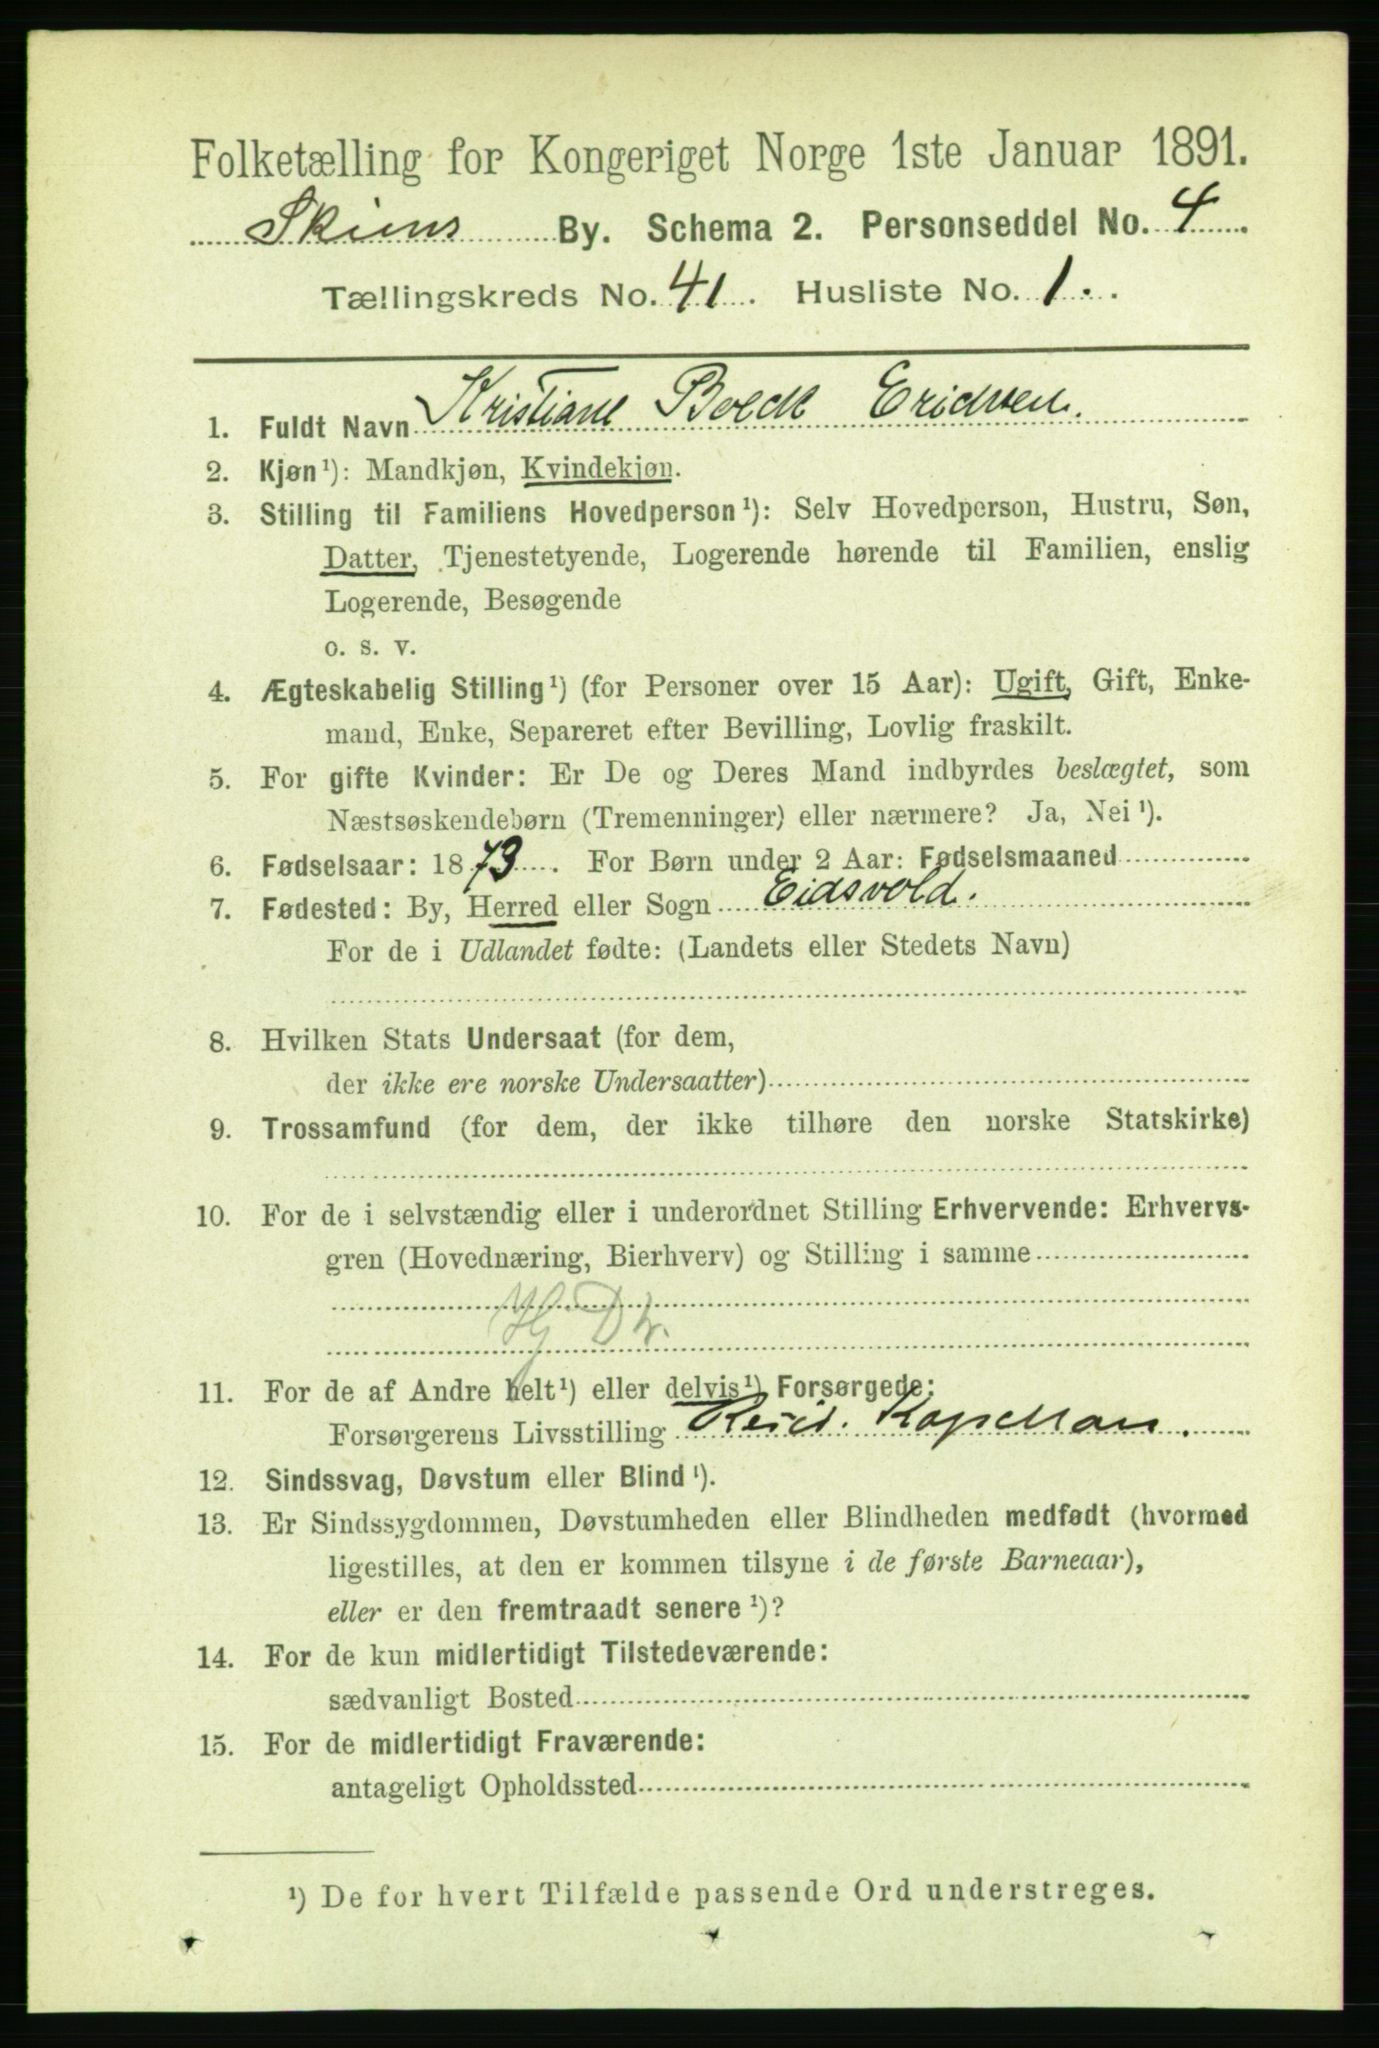 Folketælling for Kongeriget Norge 1ste Januar 1891.
Skiens By. Schema 2. Personseddel No. 4
Tællingskreds No. 41. Husliste No. 1.
1. Fuldt Navn Kristiane Boeck Erichsen.
2. Kjøn¹): Mandkjøn, Kvindekjøn.
3. Stilling til Familiens Hovedperson¹): Selv Hovedperson, Hustru, Søn,
Datter, Tjenestetyende, Logerende hørende til Familien, enslig
Logerende, Besøgende
o. s. v.
4. Ægteskabelig Stilling¹) (for Personer over 15 Aar): Ugift, Gift, Enke-
mand, Enke, Separeret efter Bevilling, Lovlig fraskilt.
5. For gifte Kvinder: Er De og Deres Mand indbyrdes beslægtet, som
Næstsøskendebørn (Tremenninger) eller nærmere? Ja, Nei¹).
6. Fødselsaar: 1873. For Børn under 2 Aar: Fødselsmaaned
7. Fødested: By, Herred eller Sogn Eidsvold.
For de i Udlandet fødte: (Landets eller Stedets Navn)
8. Hvilken Stats Undersaat (for dem,
der ikke ere norske Undersaatter)
9. Trossamfund (for dem, der ikke tilhøre den norske Statskirke)
10. For de i selvstændig eller i underordnet Stilling Erhvervende: Erhvervs-
gren (Hovednæring, Bierhverv) og Stilling i samme
11. For de af Andre helt¹) eller delvis¹) Forsørgede:
Forsørgerens Livsstilling Resid. Kapellan.
12. Sindssvag, Døvstum eller Blind¹).
13. Er Sindssygdommen, Døvstumheden eller Blindheden medfødt (hvormed
ligestilles, at den er kommen tilsyne i de første Barneaar),
eller er den fremtraadt senere¹)?
14. For de kun midlertidigt Tilstedeværende:
sædvanligt Bosted
15. For de midlertidigt Fraværende:
antageligt Opholdssted
¹) De for hvert Tilfælde passende Ord understreges.